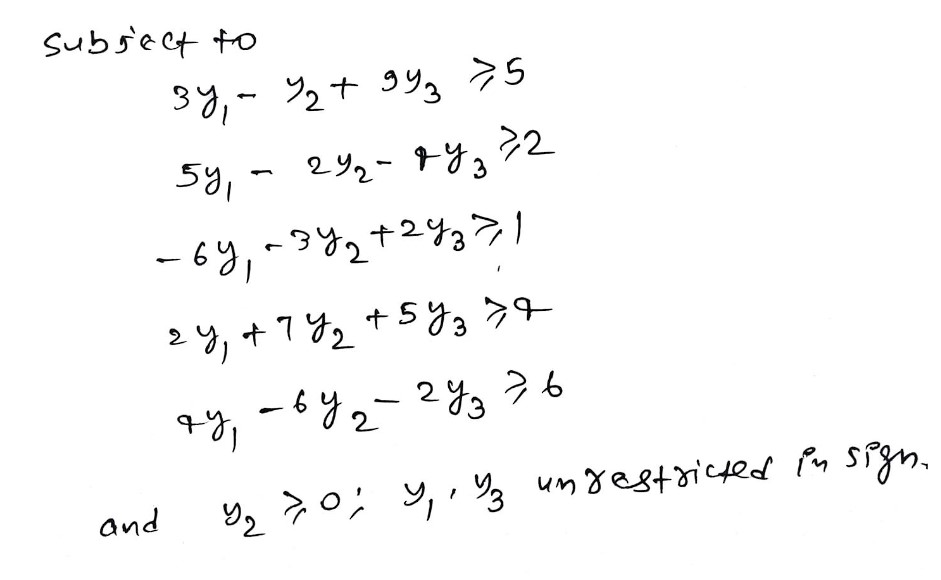 Subject to
3y₁ - y₂ + 9y₃ ≥ 5
5y₁ - 2y₂ - 4y₃ ≥ 2
-6y₁ - 3y₂ + 2y₃ ≥ 1
2y₁ + 7y₂ + 5y₃ ≥ 4
4y₁ - 6y₂ - 2y₃ ≥ 6
and y₂ ≥ 0; y₁, y₃ unrestricted in sign.